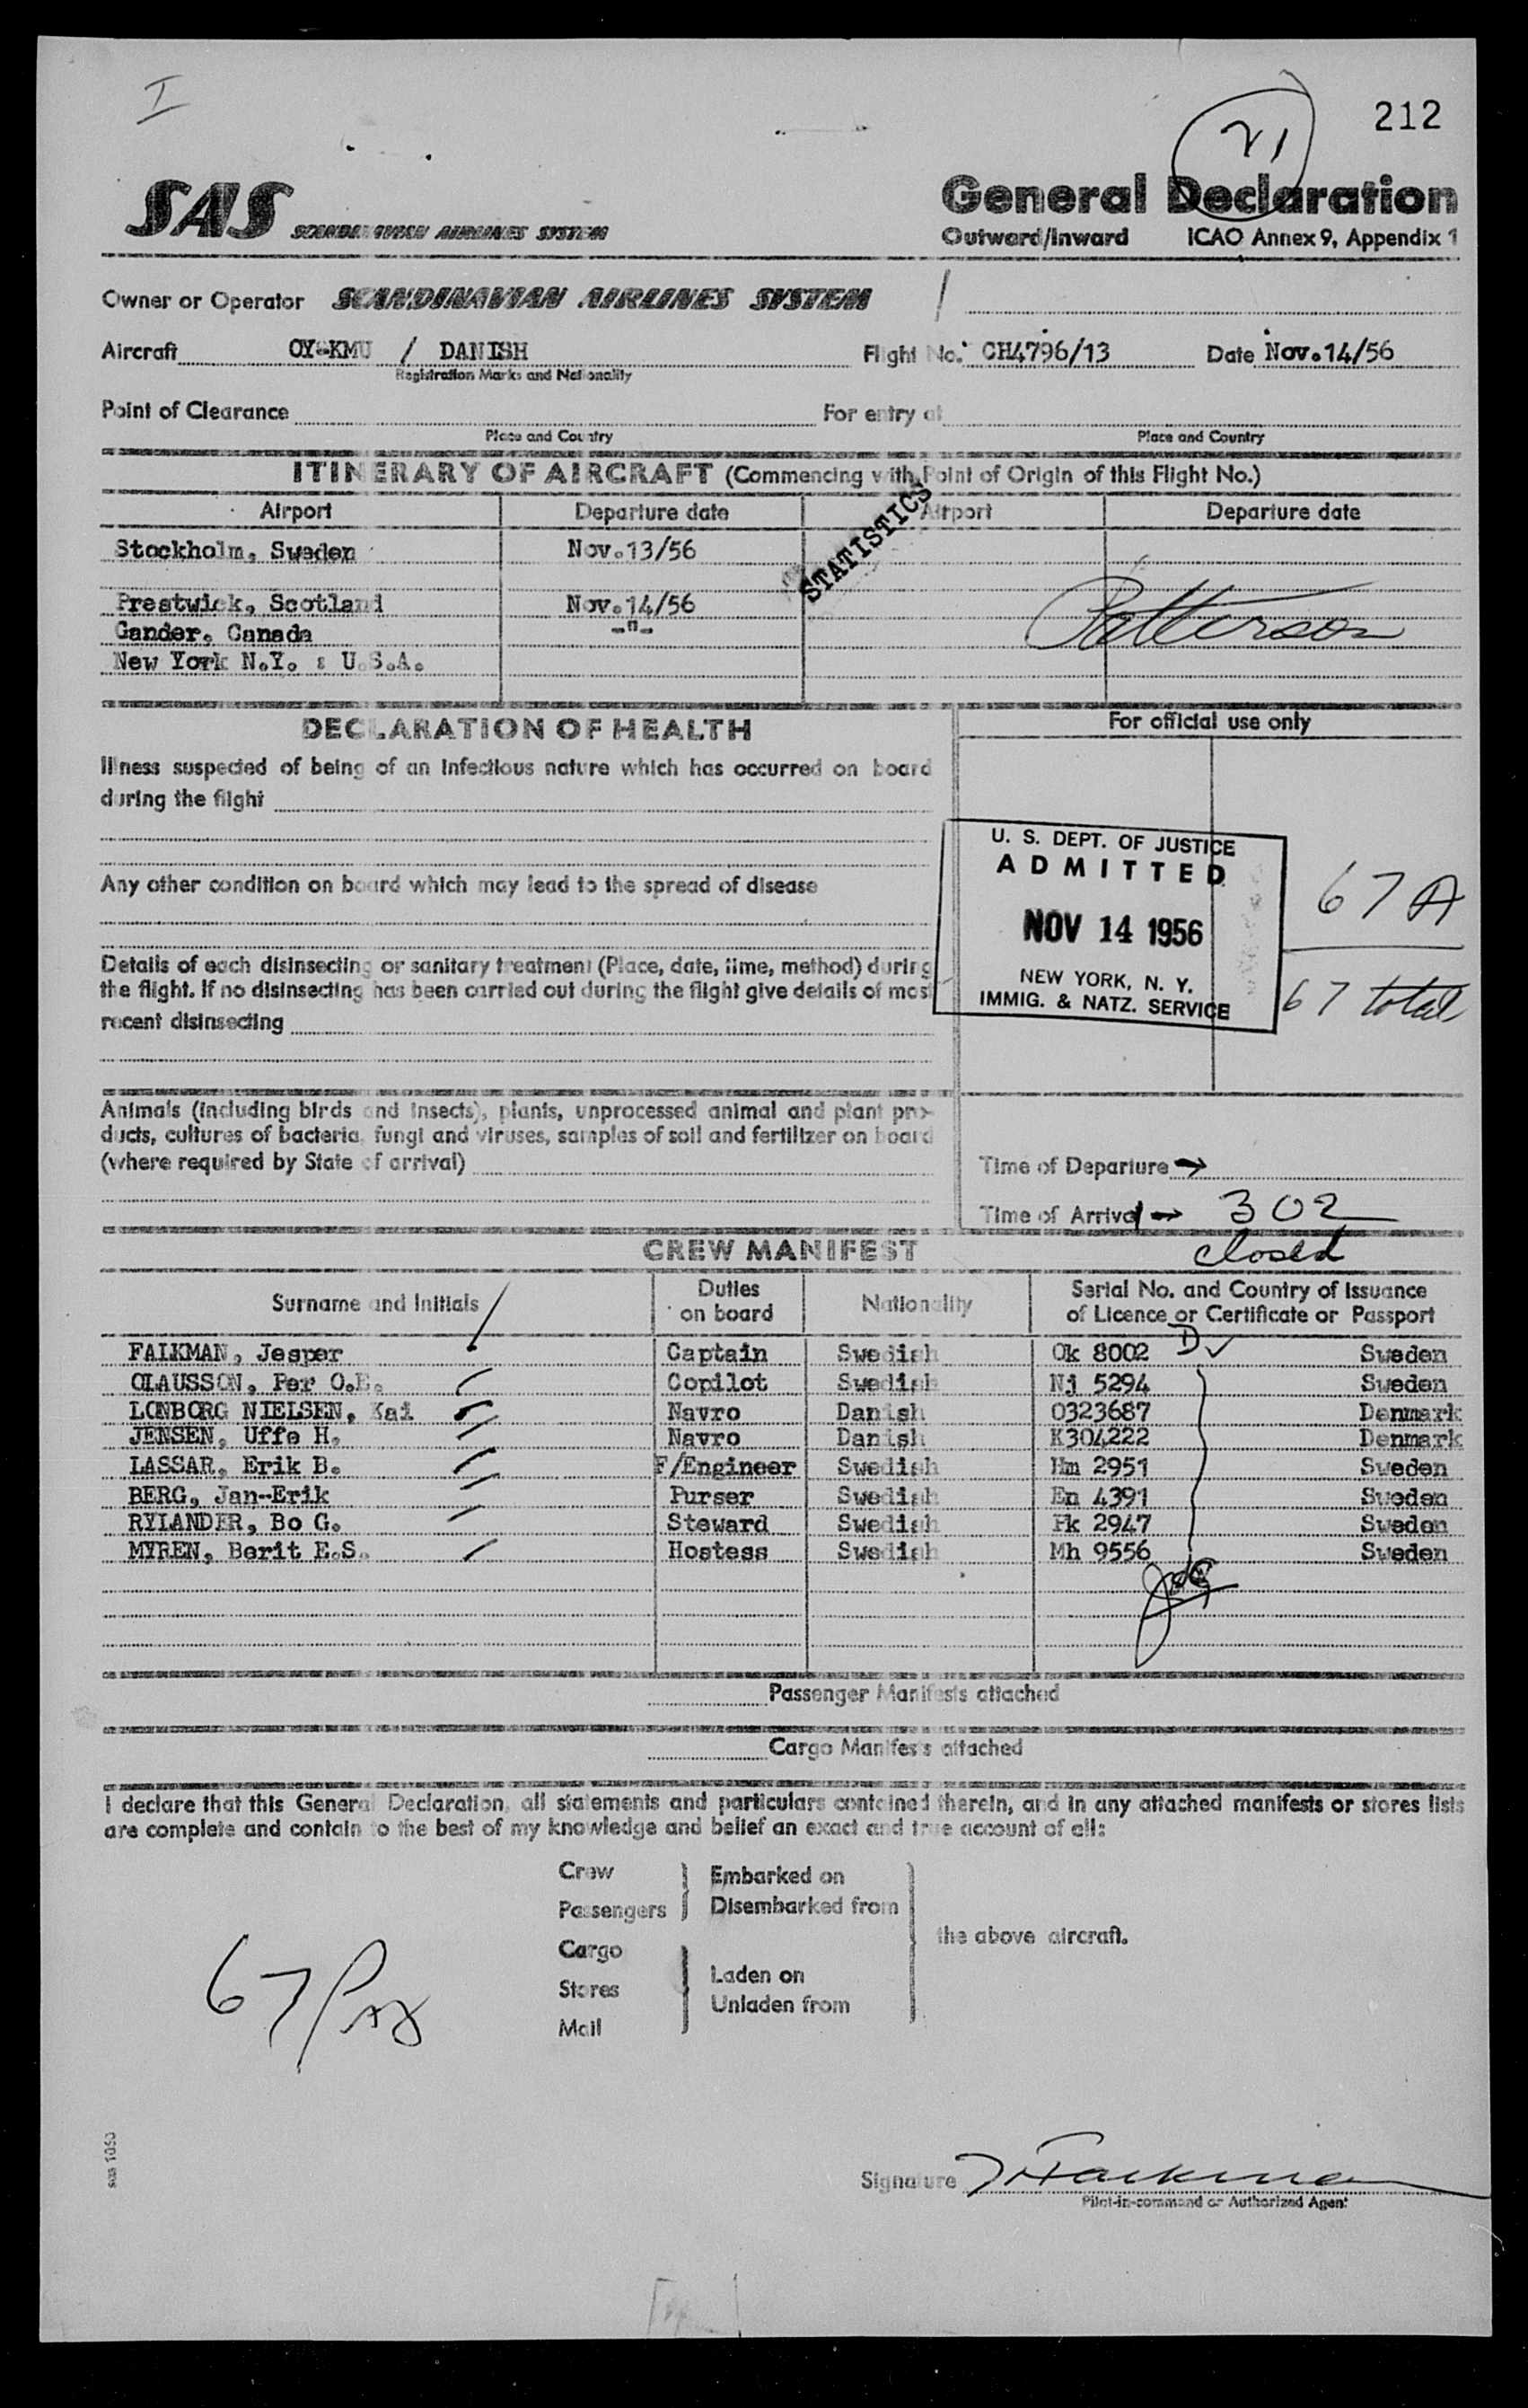 I
21
212
SAS SCANDINAVIAN AIRLINES SYSTEM
General Declaration
Outward/Inward ICAO Annex 9, Appendix 1
Owner or Operator SCANDINAVIAN AIRLINES SYSTEM
Aircraft OY-KMU / DANISH Flight No. CH4796/13 Date Nov.14/56
Registration Marks and Nationality
Point of Clearance For entry at
Place and Country Place and Country
ITINERARY OF AIRCRAFT (Commencing with Point of Origin of this Flight No.)
Airport Departure date Airport Departure date
STATISTICS
Stockholm, Sweden Nov.13/56
Prestwick, Scotland Nov.14/56
Patterson
Gander, Canada -"-
New York N.Y. : U.S.A.
DECLARATION OF HEALTH
Illness suspected of being of an infectious nature which has occurred on board
during the flight
Any other condition on board which may lead to the spread of disease
Details of each disinsecting or sanitary treatment (Place, date, time, method) during
the flight. If no disinsecting has been carried out during the flight give details of most
recent disinsecting
Animals (including birds and insects), plants, unprocessed animal and plant pro-
ducts, cultures of bacteria, fungi and viruses, samples of soil and fertilizer on board
(where required by State of arrival)
For official use only
U. S. DEPT. OF JUSTICE
ADMITTED
NOV 14 1956
NEW YORK, N. Y.
IMMIG. & NATZ. SERVICE
67 A
67 total
Time of Departure →
Time of Arrival → 302
closed
CREW MANIFEST
Surname and Initials Duties on board Nationality Serial No. and Country of Issuance of Licence or Certificate or Passport
FALKMAN, Jesper Captain Swedish Ok 8002 D ✓ Sweden
OLAUSSON, Per O.E. Copilot Swedish Nj 5294 Sweden
LONBORG NIELSEN, Kai Navro Danish 0323687 Denmark
JENSEN, Uffe H. Navro Danish K304222 Denmark
LASSAR, Erik B. F/Engineer Swedish Hm 2951 Sweden
BERG, Jan-Erik Purser Swedish En 4391 Sweden
RYLANDER, Bo G. Steward Swedish Fk 2947 Sweden
MYREN, Berit E.S. Hostess Swedish Mh 9556 Sweden
Passenger Manifests attached
Cargo Manifests attached
I declare that this General Declaration, all statements and particulars contained therein, and in any attached manifests or stores lists
are complete and contain to the best of my knowledge and belief an exact and true account of all:
Crew
Passengers
Embarked on
Disembarked from
Cargo
Stores
Mail
Laden on
Unladen from
the above aircraft.
67 Pax
sas 1050
Signature J Falkman
Pilot-in-command or Authorized Agent